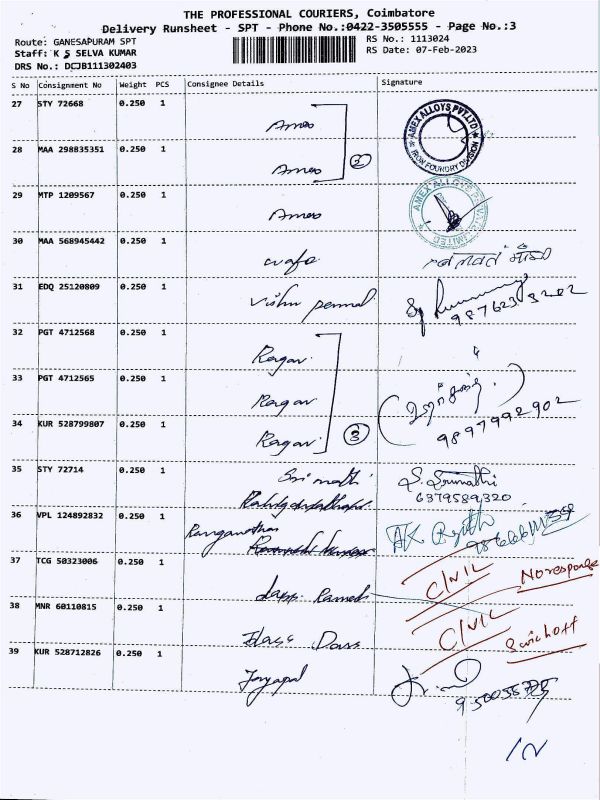 THE PROFESSIONAL COURIERS, Coimbatore
Delivery Runsheet - SPT - Phone No.:0422-3505555 - Page No.:3
Route: GANESAPURAM SPT
RS No.: 1113024
Staff: K S SELVA KUMAR
RS Date: 07-Feb-2023
DRS No.: DCJB111302403
S No Consignment No Weight PCS Consignee Details Signature
27 STY 72668 0.250 1
AMEX ALLOYS PVT.LTD
IRON FOUNDRY DIVISION
28 MAA 298835351 0.250 1
2
29 MTP 1209567 0.250 1
AMEX ALLOYS PRIVATE LIMITED
30 MAA 568945442 0.250 1
31 EDQ 25120809 0.250 1
32 PGT 4712568 0.250 1 Ragav
33 PGT 4712565 0.250 1 Ragav
34 KUR 528799807 0.250 1 Ragav 3
9897992902
35 STY 72714 0.250 1 Srimathi S. Srimathi
6379589320
36 VPL 124892832 0.250 1 Ranganathan
37 TCG 50323006 0.250 1 CIVIL No response
38 MNR 60110815 0.250 1 Dass CIVIL
39 KUR 528712826 0.250 1 Jayapal